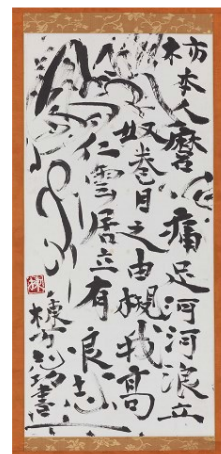 柿本人麿
痛足河河浪立
奴巻目之由槻我高
仁雲居立有良志
棟方志功書
棟